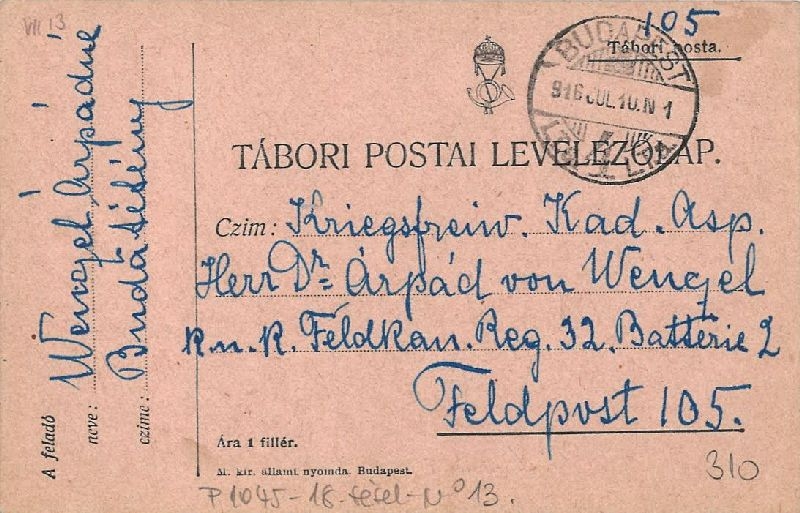 VII 13
105
Tábori posta.
BUDAPEST
916 JUL.10.N 1
TÁBORI POSTAI LEVELEZŐLAP.
Czim: Kriegsfreiw. Kad. Asp.
Herr Dr Árpád von Wenczel
k.u.k. Feldkan. Reg. 32. Batterie 2
Feldpost 105.
A feladó
neve: Wenczel Árpádné
czime: Buda tétény
Ára 1 fillér.
M. kir. állami nyomda. Budapest.
310
P1045-18-tétel-No13.